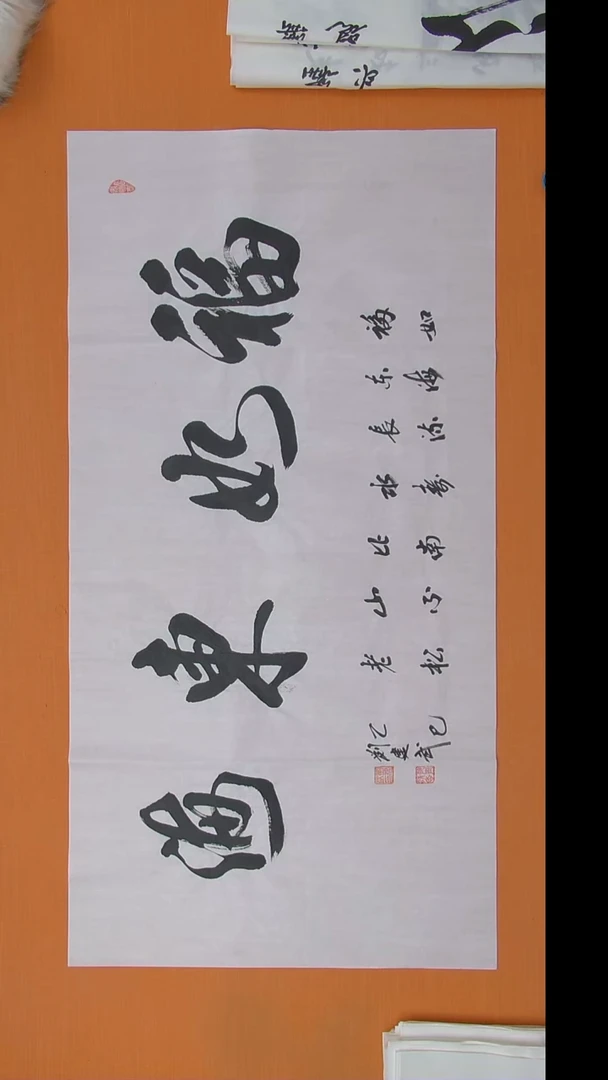 福如東海
福如
东海
長流
水壽
比南
山不
老松
乙巳
劉建武